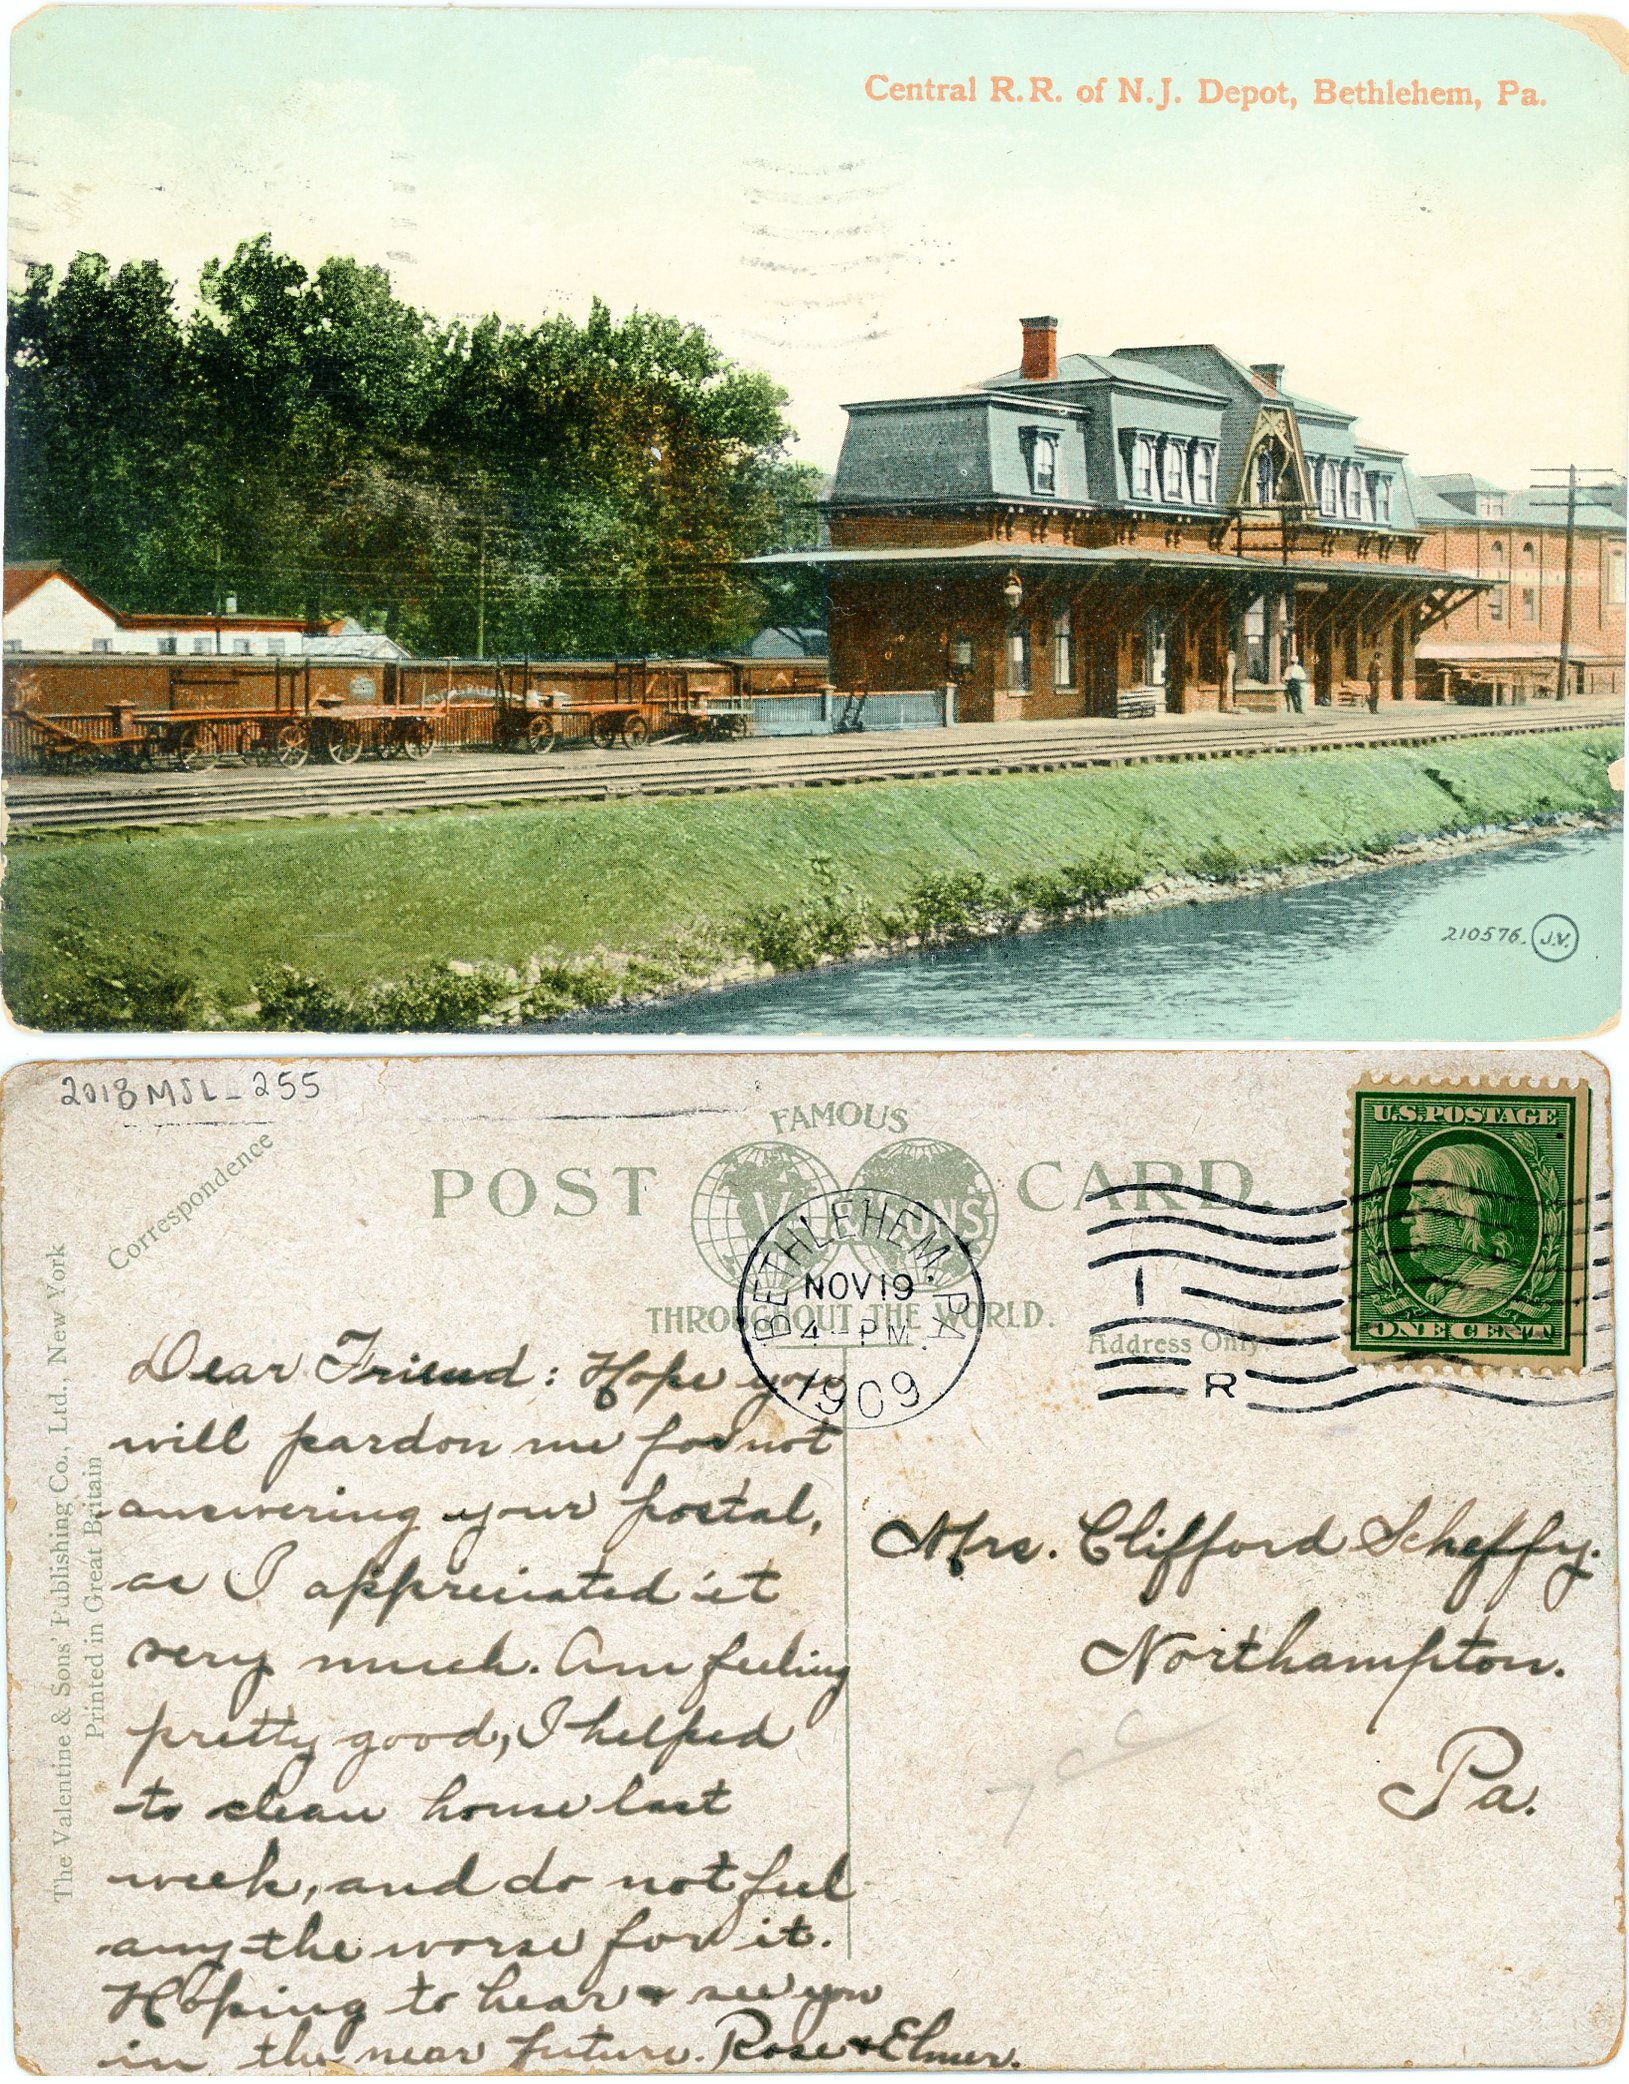 Central R.R. of N.J. Depot, Bethlehem, Pa.
210576. J.V.
2018 MSL_255
Correspondence
POST CARD.
FAMOUS
VALENTINES
THROUGHOUT THE WORLD.
The Valentine & Sons' Publishing Co., Ltd., New York
Printed in Great Britain
BETHLEHEM. PA.
NOV 19
4 - PM.
1909
1
R
U.S. POSTAGE
ONE CENT
Address Only.
Dear Friend: Hope you
will pardon me for not
answering your postal,
as I appreciated it
very much. Am feeling
pretty good, I helped
to clean house last
week, and do not feel
any the worse for it.
Hoping to hear & see you
in the near future. Rose & Elmer.
Mrs. Clifford Scheffy.
Northampton.
Pa.